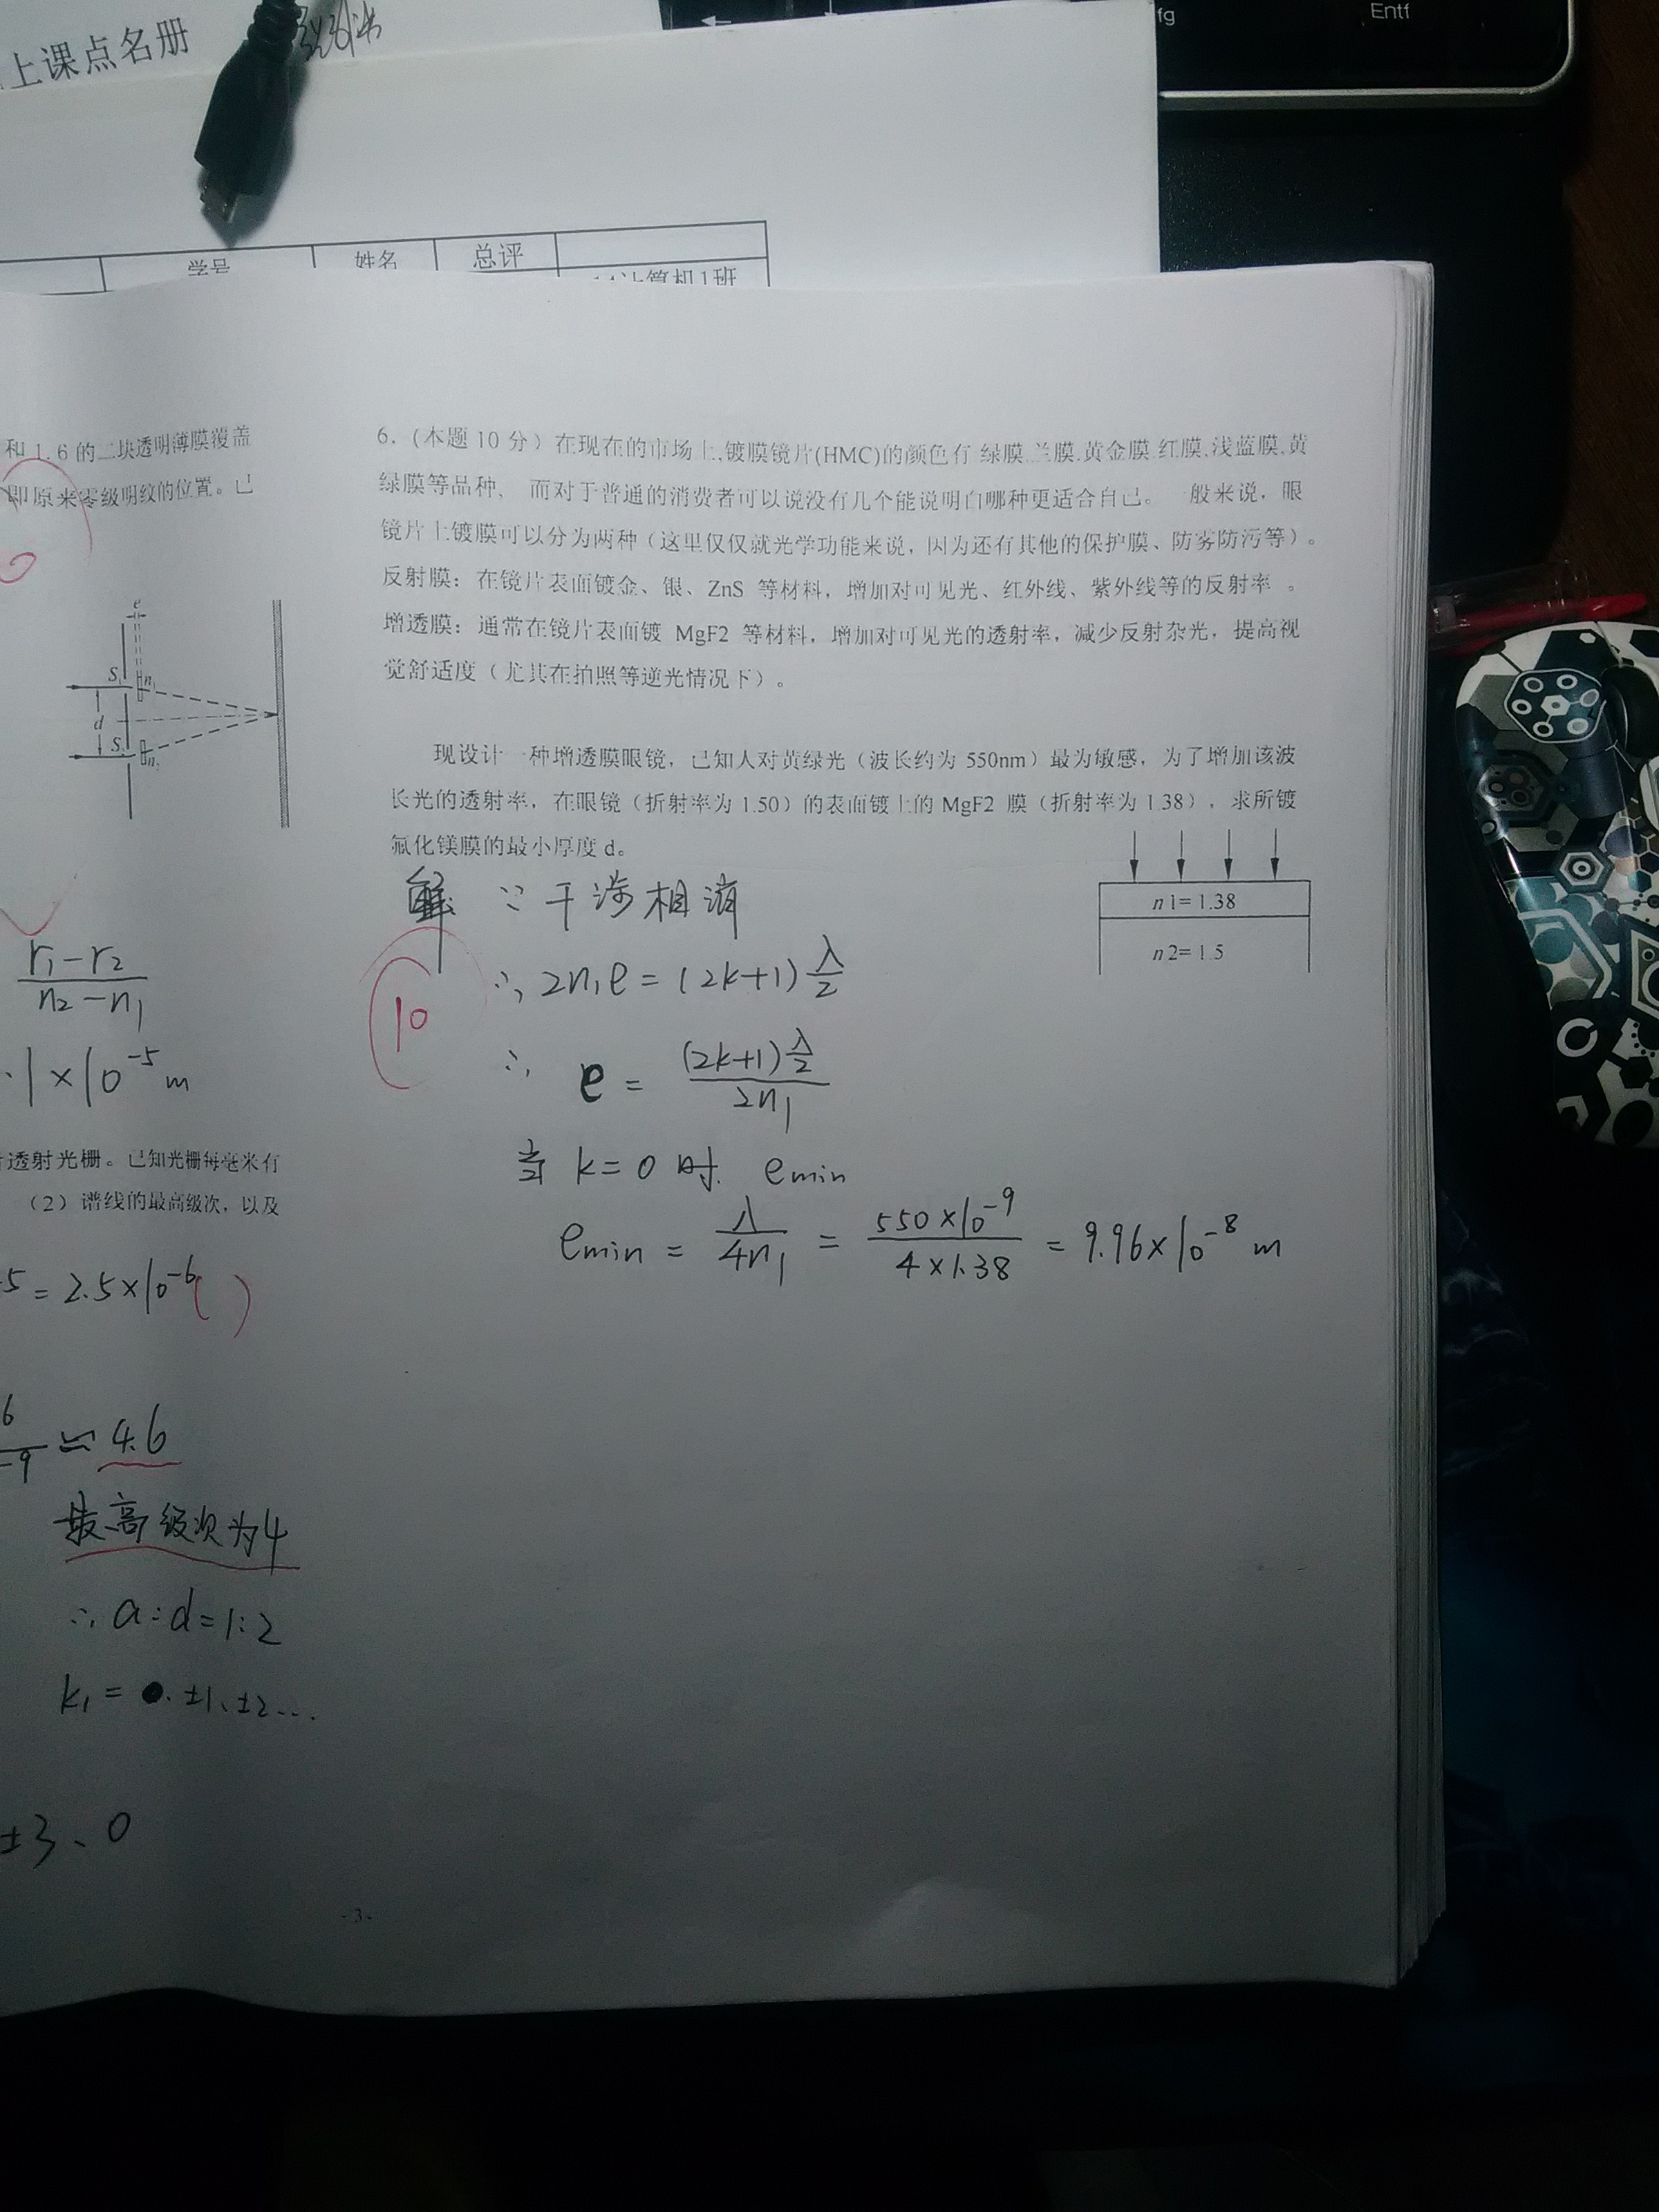 上课点名册
fg
Entf
学号 姓名 总评
计算机1班
和 1.6 的二块透明薄膜覆盖
即原来零级明纹的位置。已
e
S₁ n₁
d
S₂ n₂
r₁-r₂
n₂-n₁
.1×10⁻⁵ m
透射光栅。已知光栅每毫米有
（2）谱线的最高级次，以及
5 = 2.5×10⁻⁶
6
-9 ≈ 4.6
最高级次为4
∴ a:d=1:2
k₁ = 0. ±1、±2...
±3、0
- 3 -
6.（本题 10 分）在现在的市场上,镀膜镜片(HMC)的颜色有 绿膜.兰膜.黄金膜.红膜.浅蓝膜.黄
绿膜等品种、 而对于普通的消费者可以说没有几个能说明白哪种更适合自己。 一般来说，眼
镜片上镀膜可以分为两种（这里仅仅就光学功能来说，因为还有其他的保护膜、防雾防污等）。
反射膜：在镜片表面镀金、银、ZnS 等材料，增加对可见光、红外线、紫外线等的反射率 。
增透膜：通常在镜片表面镀 MgF2 等材料，增加对可见光的透射率，减少反射杂光，提高视
觉舒适度（尤其在拍照等逆光情况下）。
现设计一种增透膜眼镜，已知人对黄绿光（波长约为 550nm）最为敏感，为了增加该波
长光的透射率，在眼镜（折射率为 1.50）的表面镀上的 MgF2 膜（折射率为 1.38），求所镀
氟化镁膜的最小厚度 d。
n1= 1.38
n2= 1.5
解 ∵ 干涉相消
∴ 2n₁e = (2k+1) λ/2
10
∴ e = (2k+1) λ/2 / 2n₁
当 k=0 时. emin
emin = λ/4n₁ = 550×10⁻⁹/4×1.38 = 9.96×10⁻⁸ m